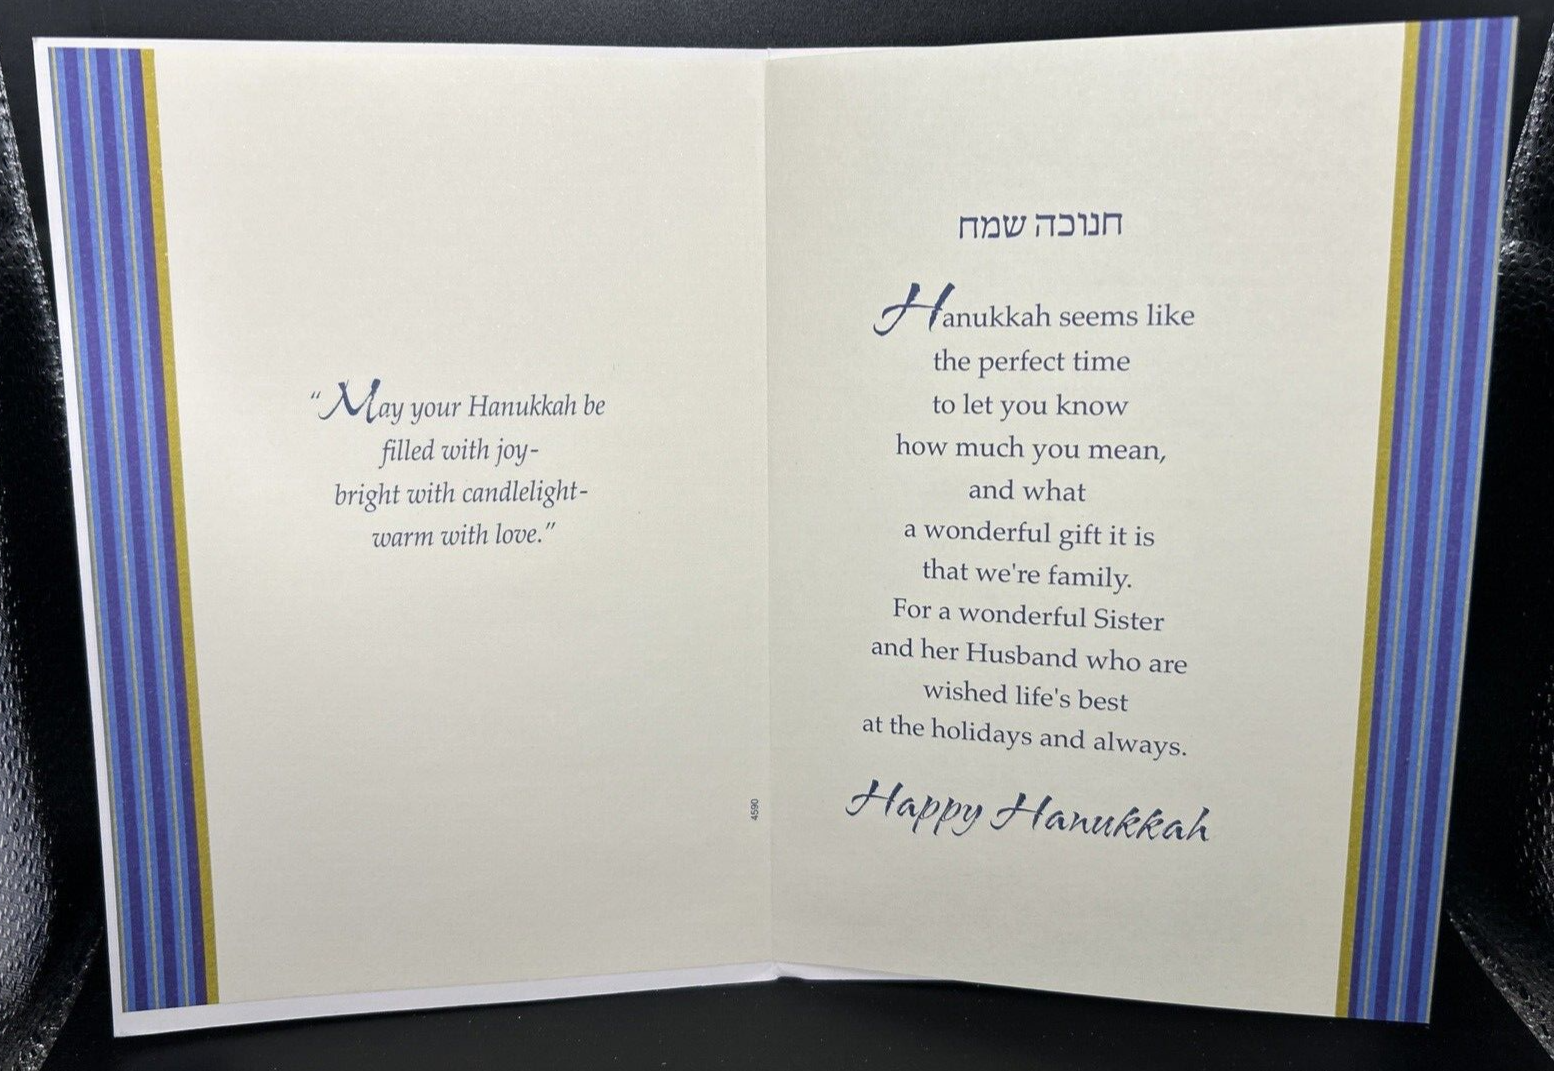 “May your Hanukkah be
filled with joy-
bright with candlelight-
warm with love.”
4590
חנוכה שמח
Hanukkah seems like
the perfect time
to let you know
how much you mean,
and what
a wonderful gift it is
that we're family.
For a wonderful Sister
and her Husband who are
wished life's best
at the holidays and always.
Happy Hanukkah